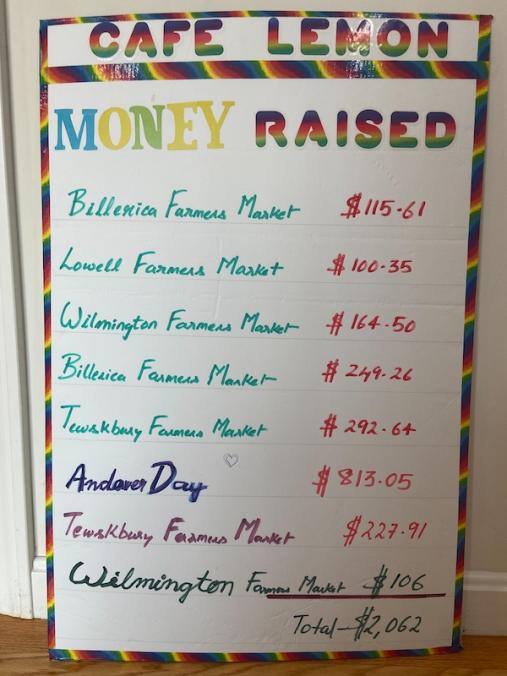 CAFE LEMON
MONEY RAISED
Billerica Farmers Market $115.61
Lowell Farmers Market $100.35
Wilmington Farmers Market $164.50
Billerica Farmers Market $249.26
Tewskbury Farmers Market $292.64
Andover Day $813.05
Tewskbury Farmers Market $227.91
Wilmington Farmers Market $106
Total-$2,062